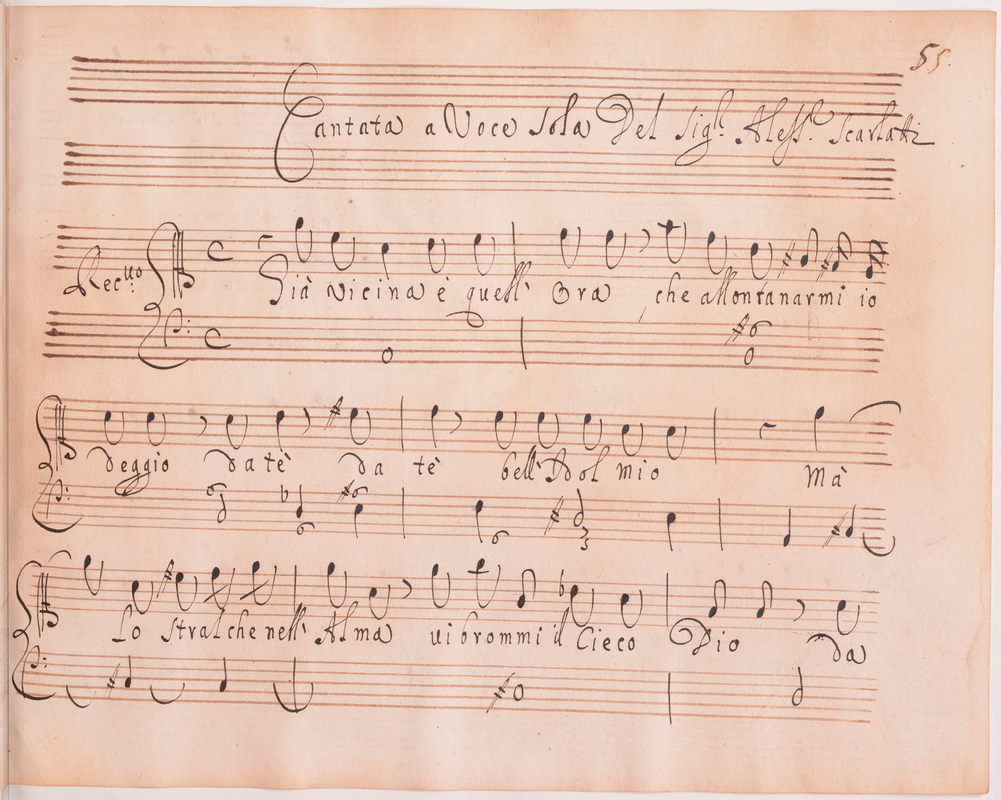 55.
Cantata a Voce sola Del Sig.r Aless.o Scarlatti
Rec.uo
Già vicina è quell' Ora che allontanarmi io
deggio da tè da tè bell' Idol mio Mà
Lo stral che nell' Alma vibrommi il Cieco Dio da